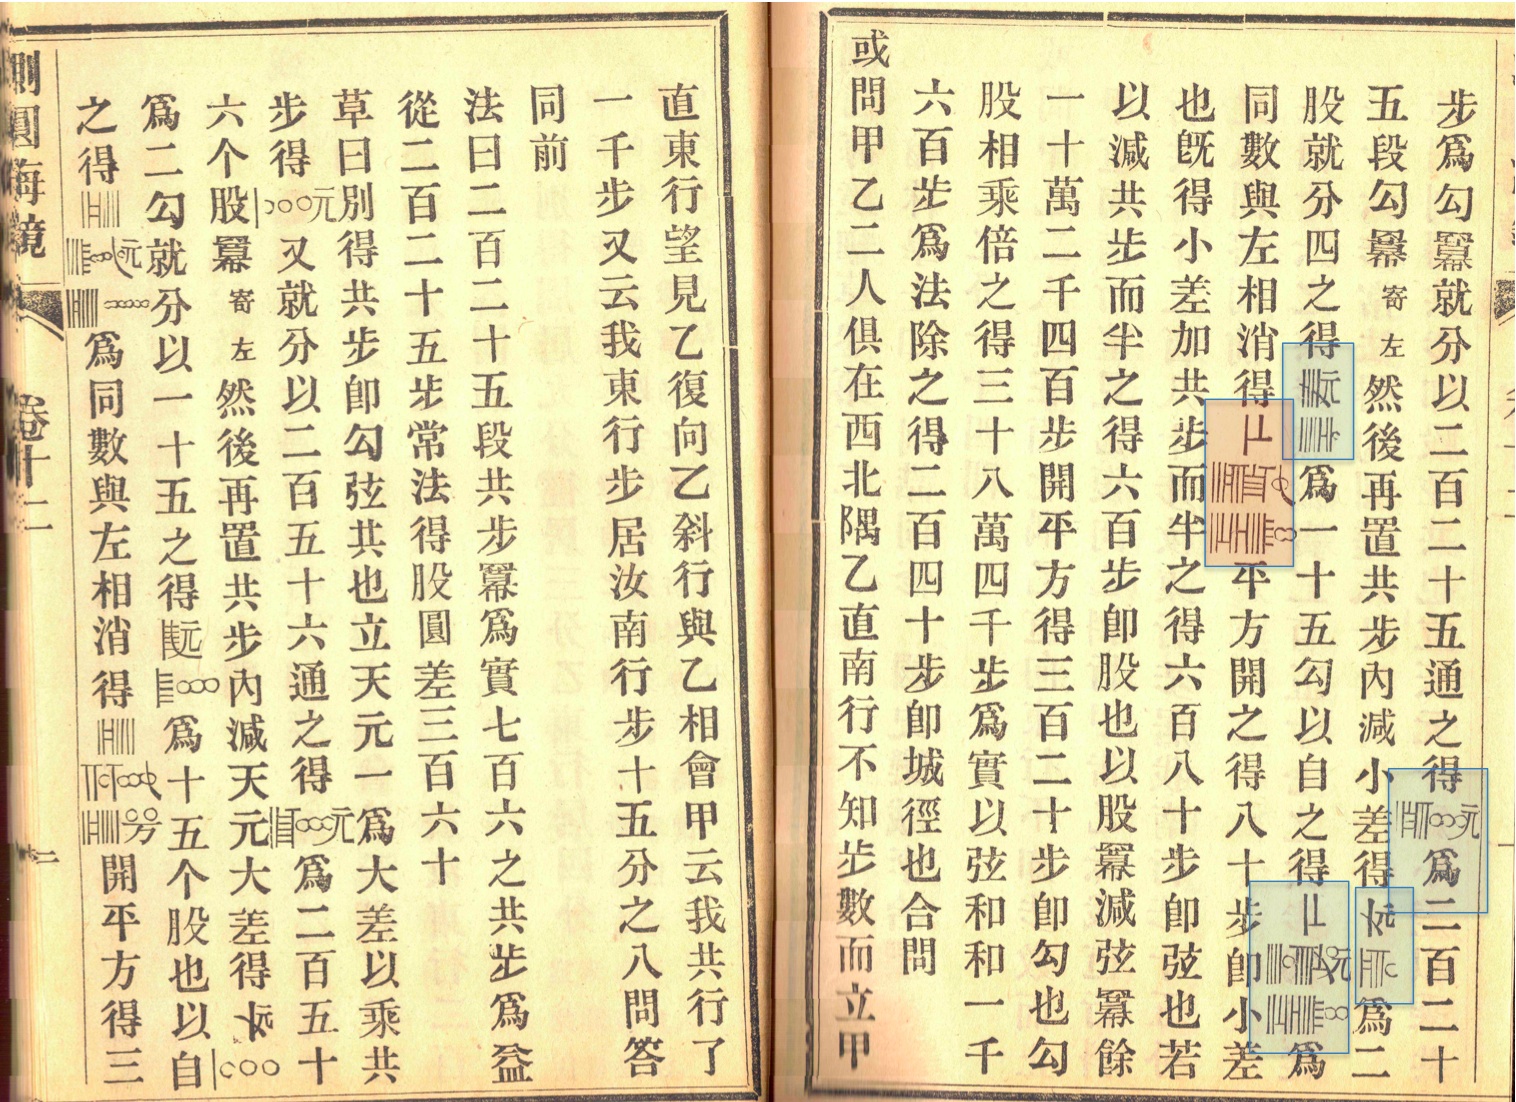 步爲勾羃就分以二百二十五通之得元爲二百二十
五段勾羃寄左然後再置共步內減小差得元爲二
股就分四之得元爲一十五勾以自之得元爲
同數與左相消得平方開之得八十步卽小差
也旣得小差加共步而半之得六百八十步卽弦也若
以減共步而半之得六百步卽股也以股羃減弦羃餘
一十萬二千四百步開平方得三百二十步卽勾也勾
股相乘倍之得三十八萬四千步爲實以弦和和一千
六百步爲法除之得二百四十步卽城徑也合問
或問甲乙二人俱在西北隅乙直南行不知步數而立甲
直東行望見乙復向乙斜行與乙相會甲云我共行了
一千步又云我東行步居汝南行步十五分之八問答
同前
法曰二百二十五段共步羃爲實七百六之共步爲益
從二百二十五步常法得股圓差三百六十
草曰別得共步卽勾弦共也立天元一爲大差以乘共
步得元又就分以二百五十六通之得元爲二百五十
六个股羃寄左然後再置共步內減天元大差得元
爲二勾就分以一十五之得元爲十五个股也以自
之得元爲同數與左相消得開平方得三
測圓海鏡 卷十二 二